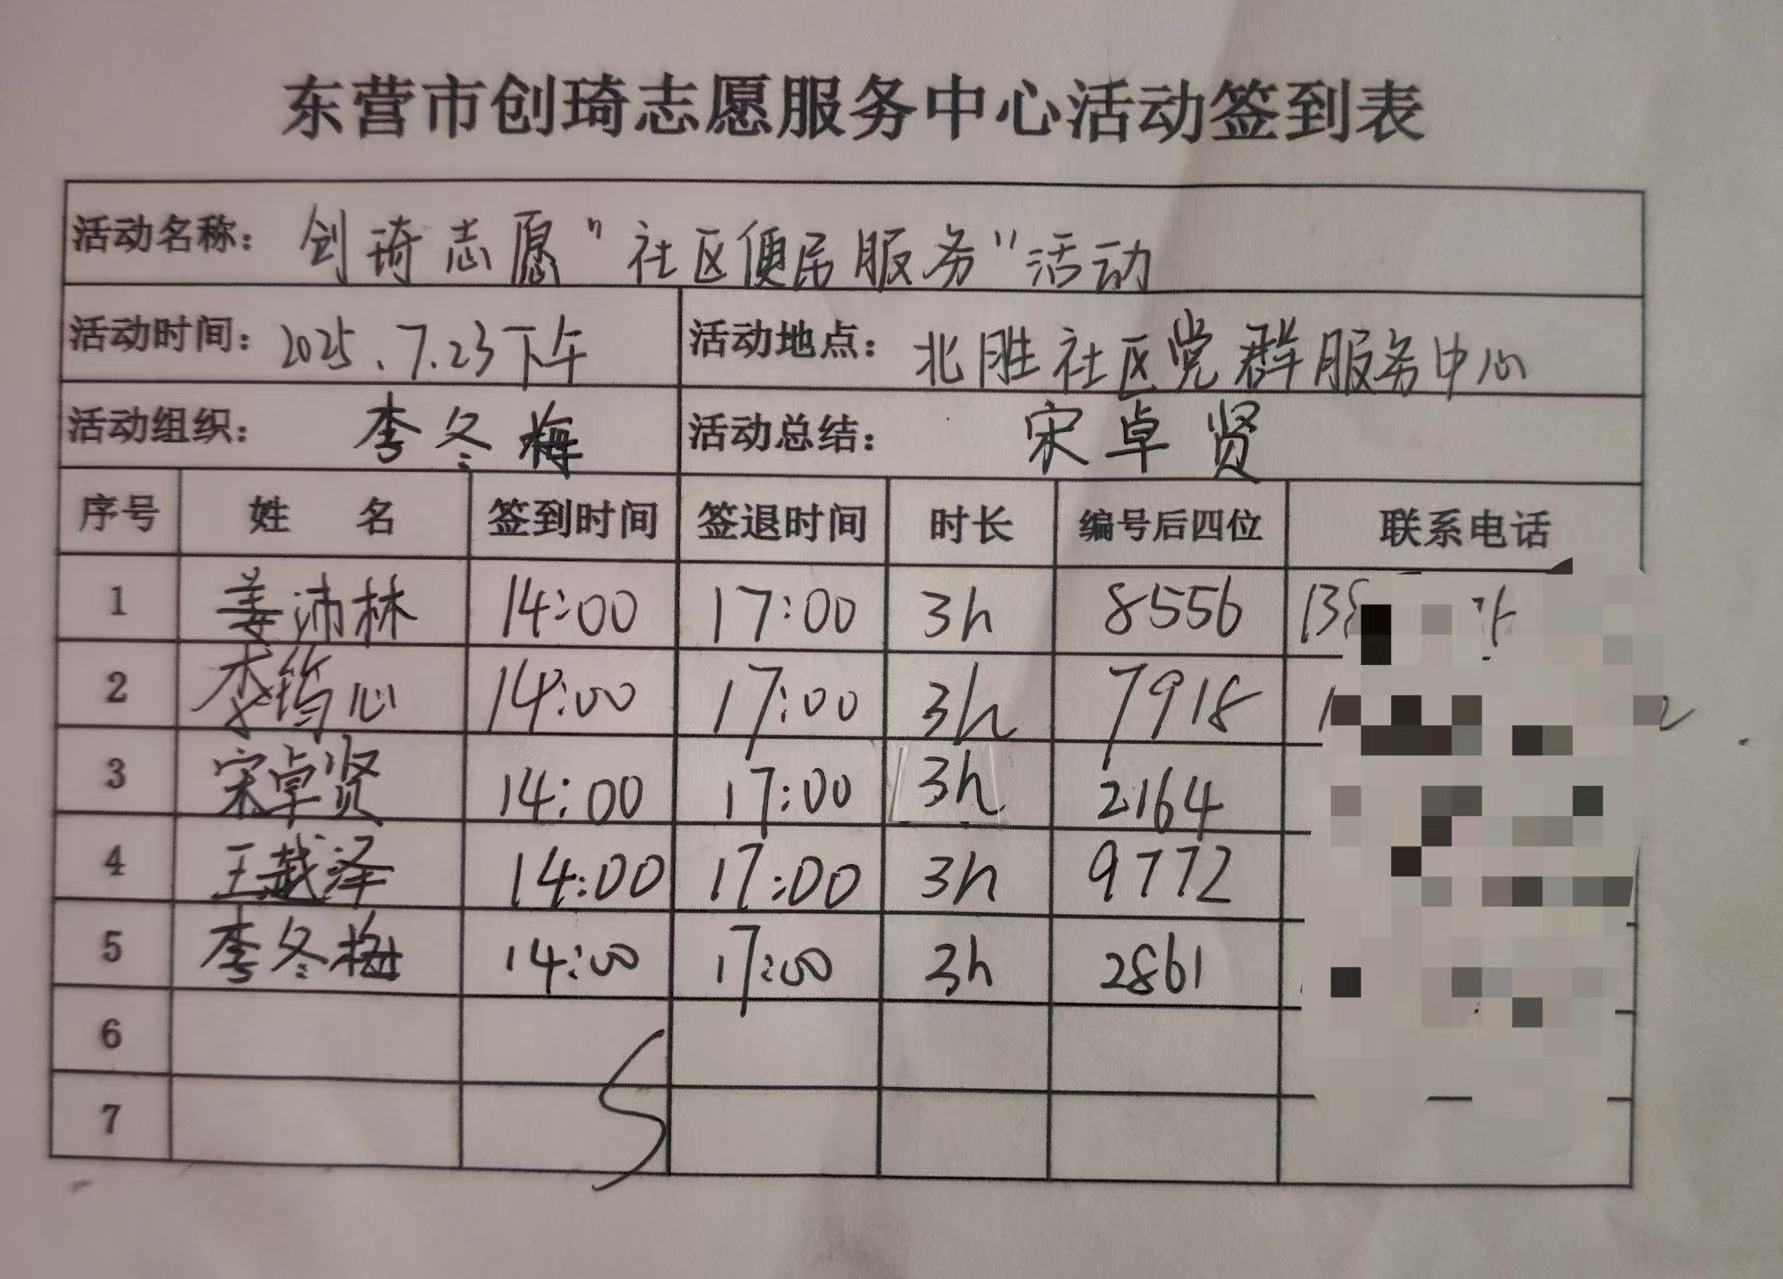 东营市创琦志愿服务中心活动签到表
活动名称: 创琦志愿"社区便民服务"活动
活动时间: 2025.7.23下午 活动地点: 北胜社区党群服务中心
活动组织: 李冬梅 活动总结: 宋卓贤
序号 姓 名 签到时间 签退时间 时长 编号后四位 联系电话
1 姜沛林 14:00 17:00 3h 8556
2 李筠心 14:00 17:00 3h 7918
3 宋卓贤 14:00 17:00 3h 2164
4 王越泽 14:00 17:00 3h 9772
5 李冬梅 14:00 17:00 3h 2861
6
7